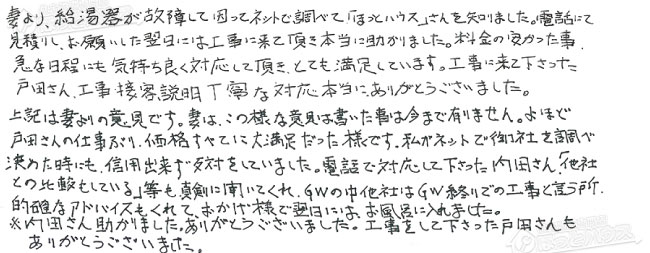 妻より、給湯器が故障して困ってネットで調べて「ほっとハウス」さんを知りました。電話にて
見積りし、お願いした翌日には工事に来て頂き本当に助かりました。料金の安かった事、
急な日程にも気持ち良く対応して頂き、とても満足しています。工事に来て下さった
戸田さん、工事、接客、説明、丁寧な対応本当にありがとうございました。
上記は妻よりの意見です。妻は、この様な意見は書いた事は今まで有りません。よほど
戸田さんの仕事ぶり、価格すべてに大満足だった様です。私がネットで御社を調べ
決めた時にも、信用出来ず反対をしていました。電話で対応して下さった内田さん「他社
との比較もしている」等も真剣に聞いてくれ、GWの中他社はGW終りでの工事と言う所、
的確なアドバイスもくれて、おかげ様で翌日には、お風呂に入れました。
※内田さん助かりました。ありがとうございました。工事をして下さった戸田さんも
ありがとうございました。